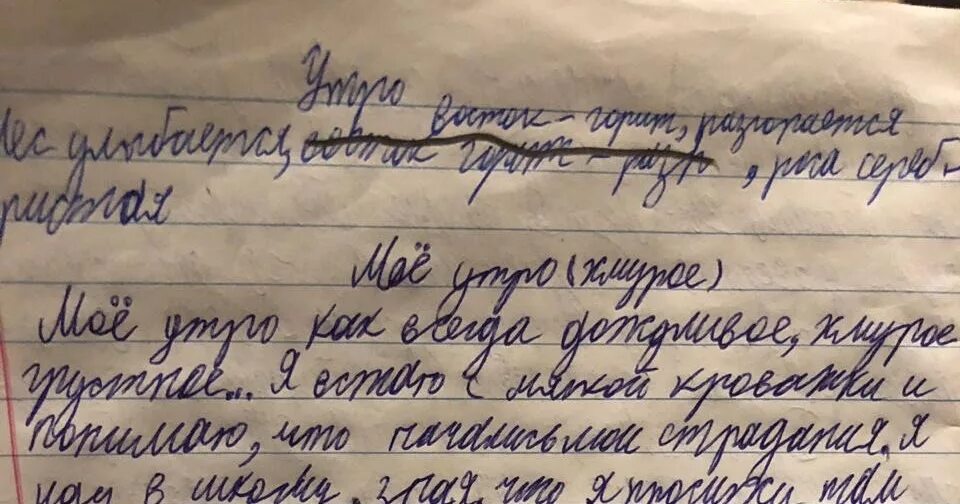 Утро
восток - горит, разгорается
Лес улыбается, восток горит - разг , роса сереб-
ристая
Моё утро (хмурое)
Моё утро как всегда дождливое, хмурое
грустное... Я встаю с мягкой кроватки и
понимаю, что начались мои страдания. Я
иду в школу, зная, что я просижу там